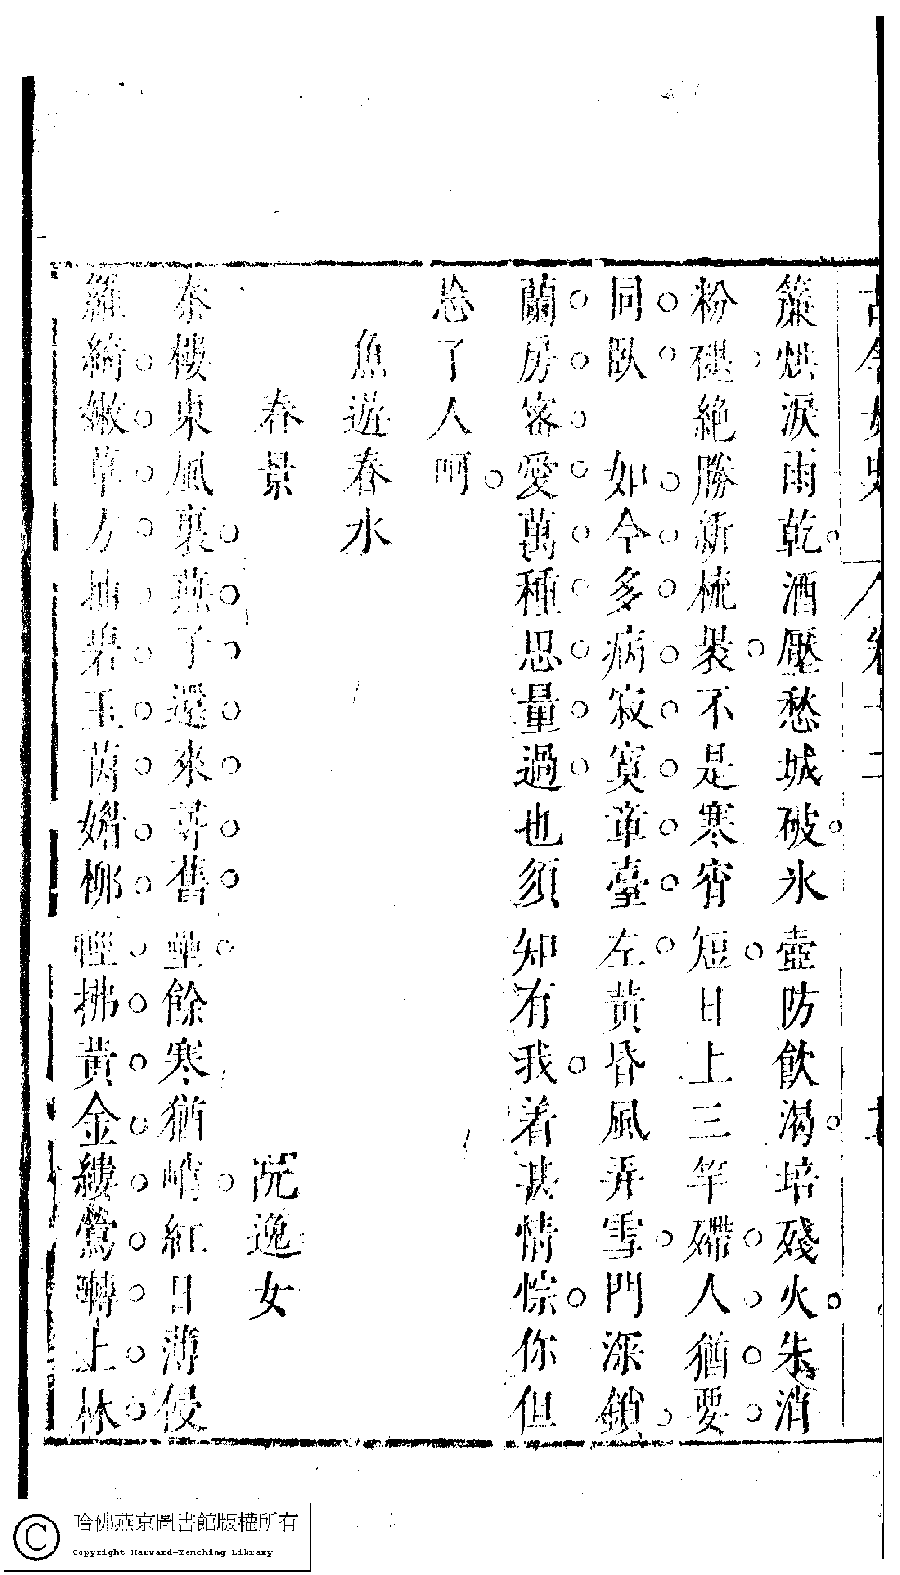 古今女史 卷十二
簾烘淚雨乾酒壓愁城破氷壺防飲渴培殘火朱消
粉褪絶勝新梳裝不是寒宵短日上三竿殢人猶要
同臥 如今多病寂寞章臺左黃昏風弄雪門深鎖
蘭房密愛萬種思量過也須知有我着甚情悰你但
忩了人呵
魚遊春水
春景 阮逸女
秦樓東風裏燕子還來尋舊壘餘寒猶峭紅日薄侵
羅綺嫩草方抽碧玉茵媚柳輕拂黃金縷鶯囀上林
哈佛燕京圖書館版權所有
Copyright Harvard-Yenching Library